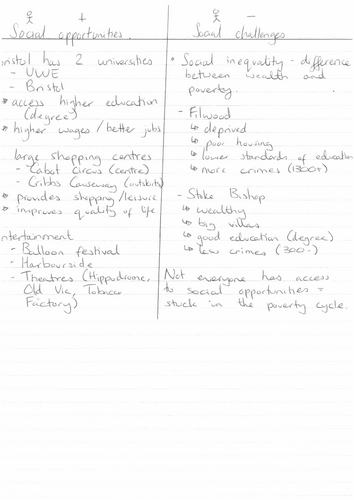 +
Social opportunities.
ristol has 2 universities
- UWE
- Bristol
* access higher education
(degree)
* higher wages / better jobs
large shopping centres
- Cabot Circus (centre)
- Cribbs Causeway (outskirts)
* provides shopping / leisure
* improves quality of life
ntertainment
- Balloon festival
- Harbourside
- Theatres (Hippodrome,
Old Vic, Tobacco
Factory)
-
Social challenges
* Social inequality - difference
between wealth and
poverty.
- Filwood
↳ deprived
↳ poor housing
↳ lower standards of education
↳ more crimes (1300+)
- Stoke Bishop
↳ wealthy
↳ big villas
↳ good education (degree)
↳ few crimes (300-)
Not everyone has access
to social opportunities =
stuck in the poverty cycle.